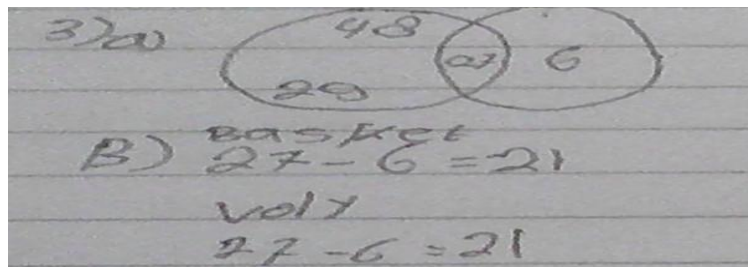 3)a)
48
27 6
29
Basket
B) 27-6=21
Voly
27-6=21